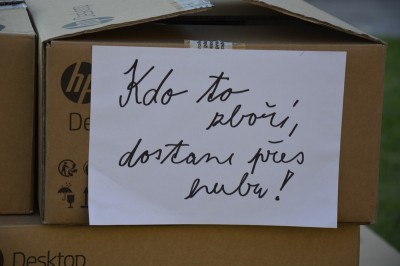 Kdo to
zboří,
dostane přes
hubu!
hp
De
Desktop